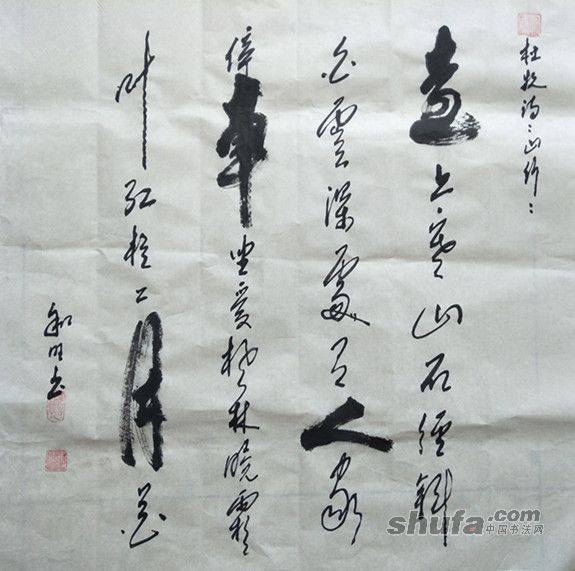 杜牧诗:山行:
遠上寒山石徑斜
白雲深處有人家
停車坐爱楓林晚霜
叶红於二月花
和明书
shufa.com
中国书法网